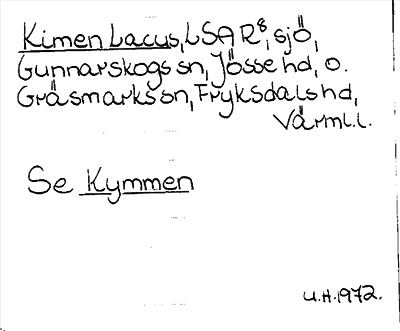 Kimen Lacus, LSAR⁸, sjö,
Gunnarskogs sn, Jösse hd, o.
Gräsmarks sn, Fryksdals hd,
Värml.l.
Se Kymmen
U.H.1972.